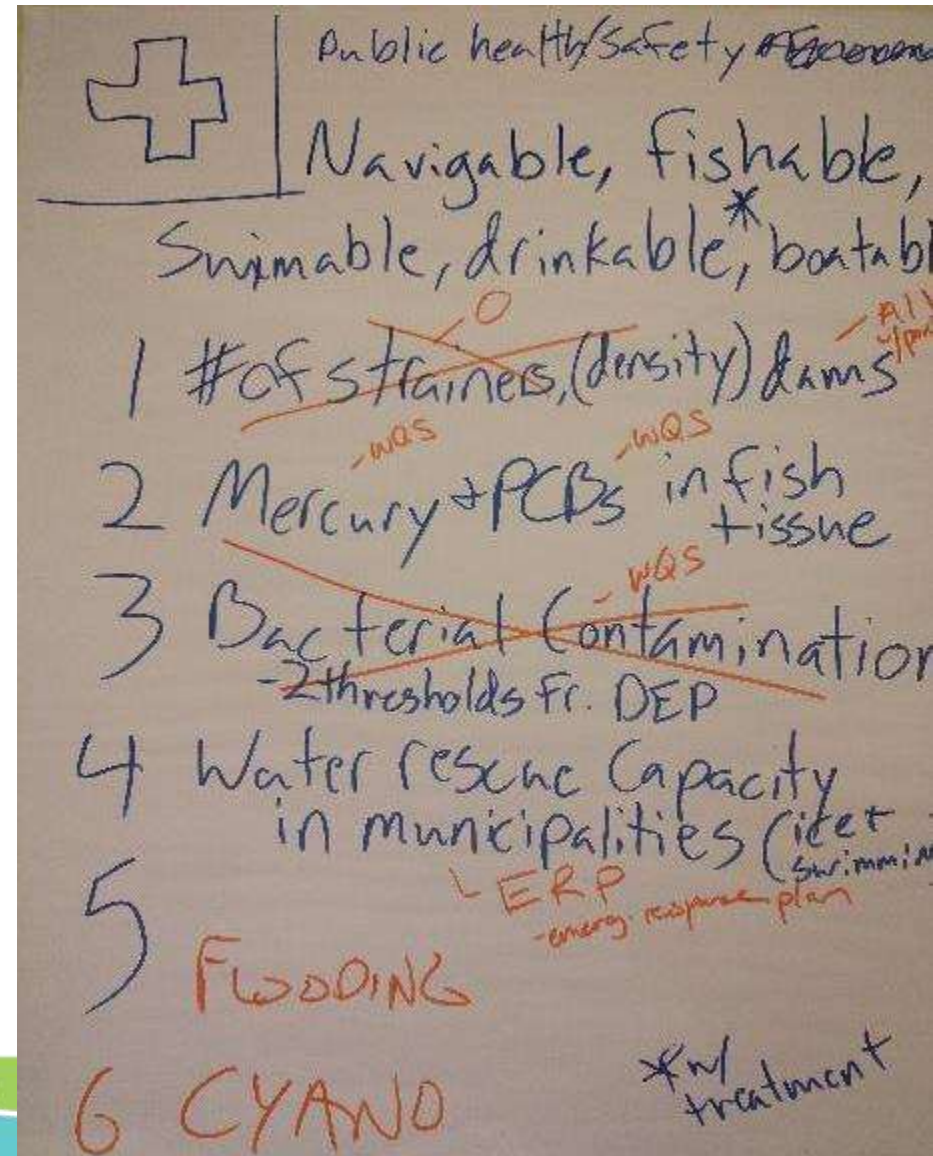 Public health/Safety
Navigable, fishable,
Swimmable, drinkable,* boatabl
O
All
1 #of strainers, (density) dams
-WQS -WQS
2 Mercury + PCBs in fish
tissue
-WQS
3 Bacterial Contamination
-2 thresholds Fr. DEP
4 Water rescue Capacity
in municipalities (ice +
swimmin
ERP
-emerg. response plan
5 FLOODING
6 CYANO
*w/
treatment